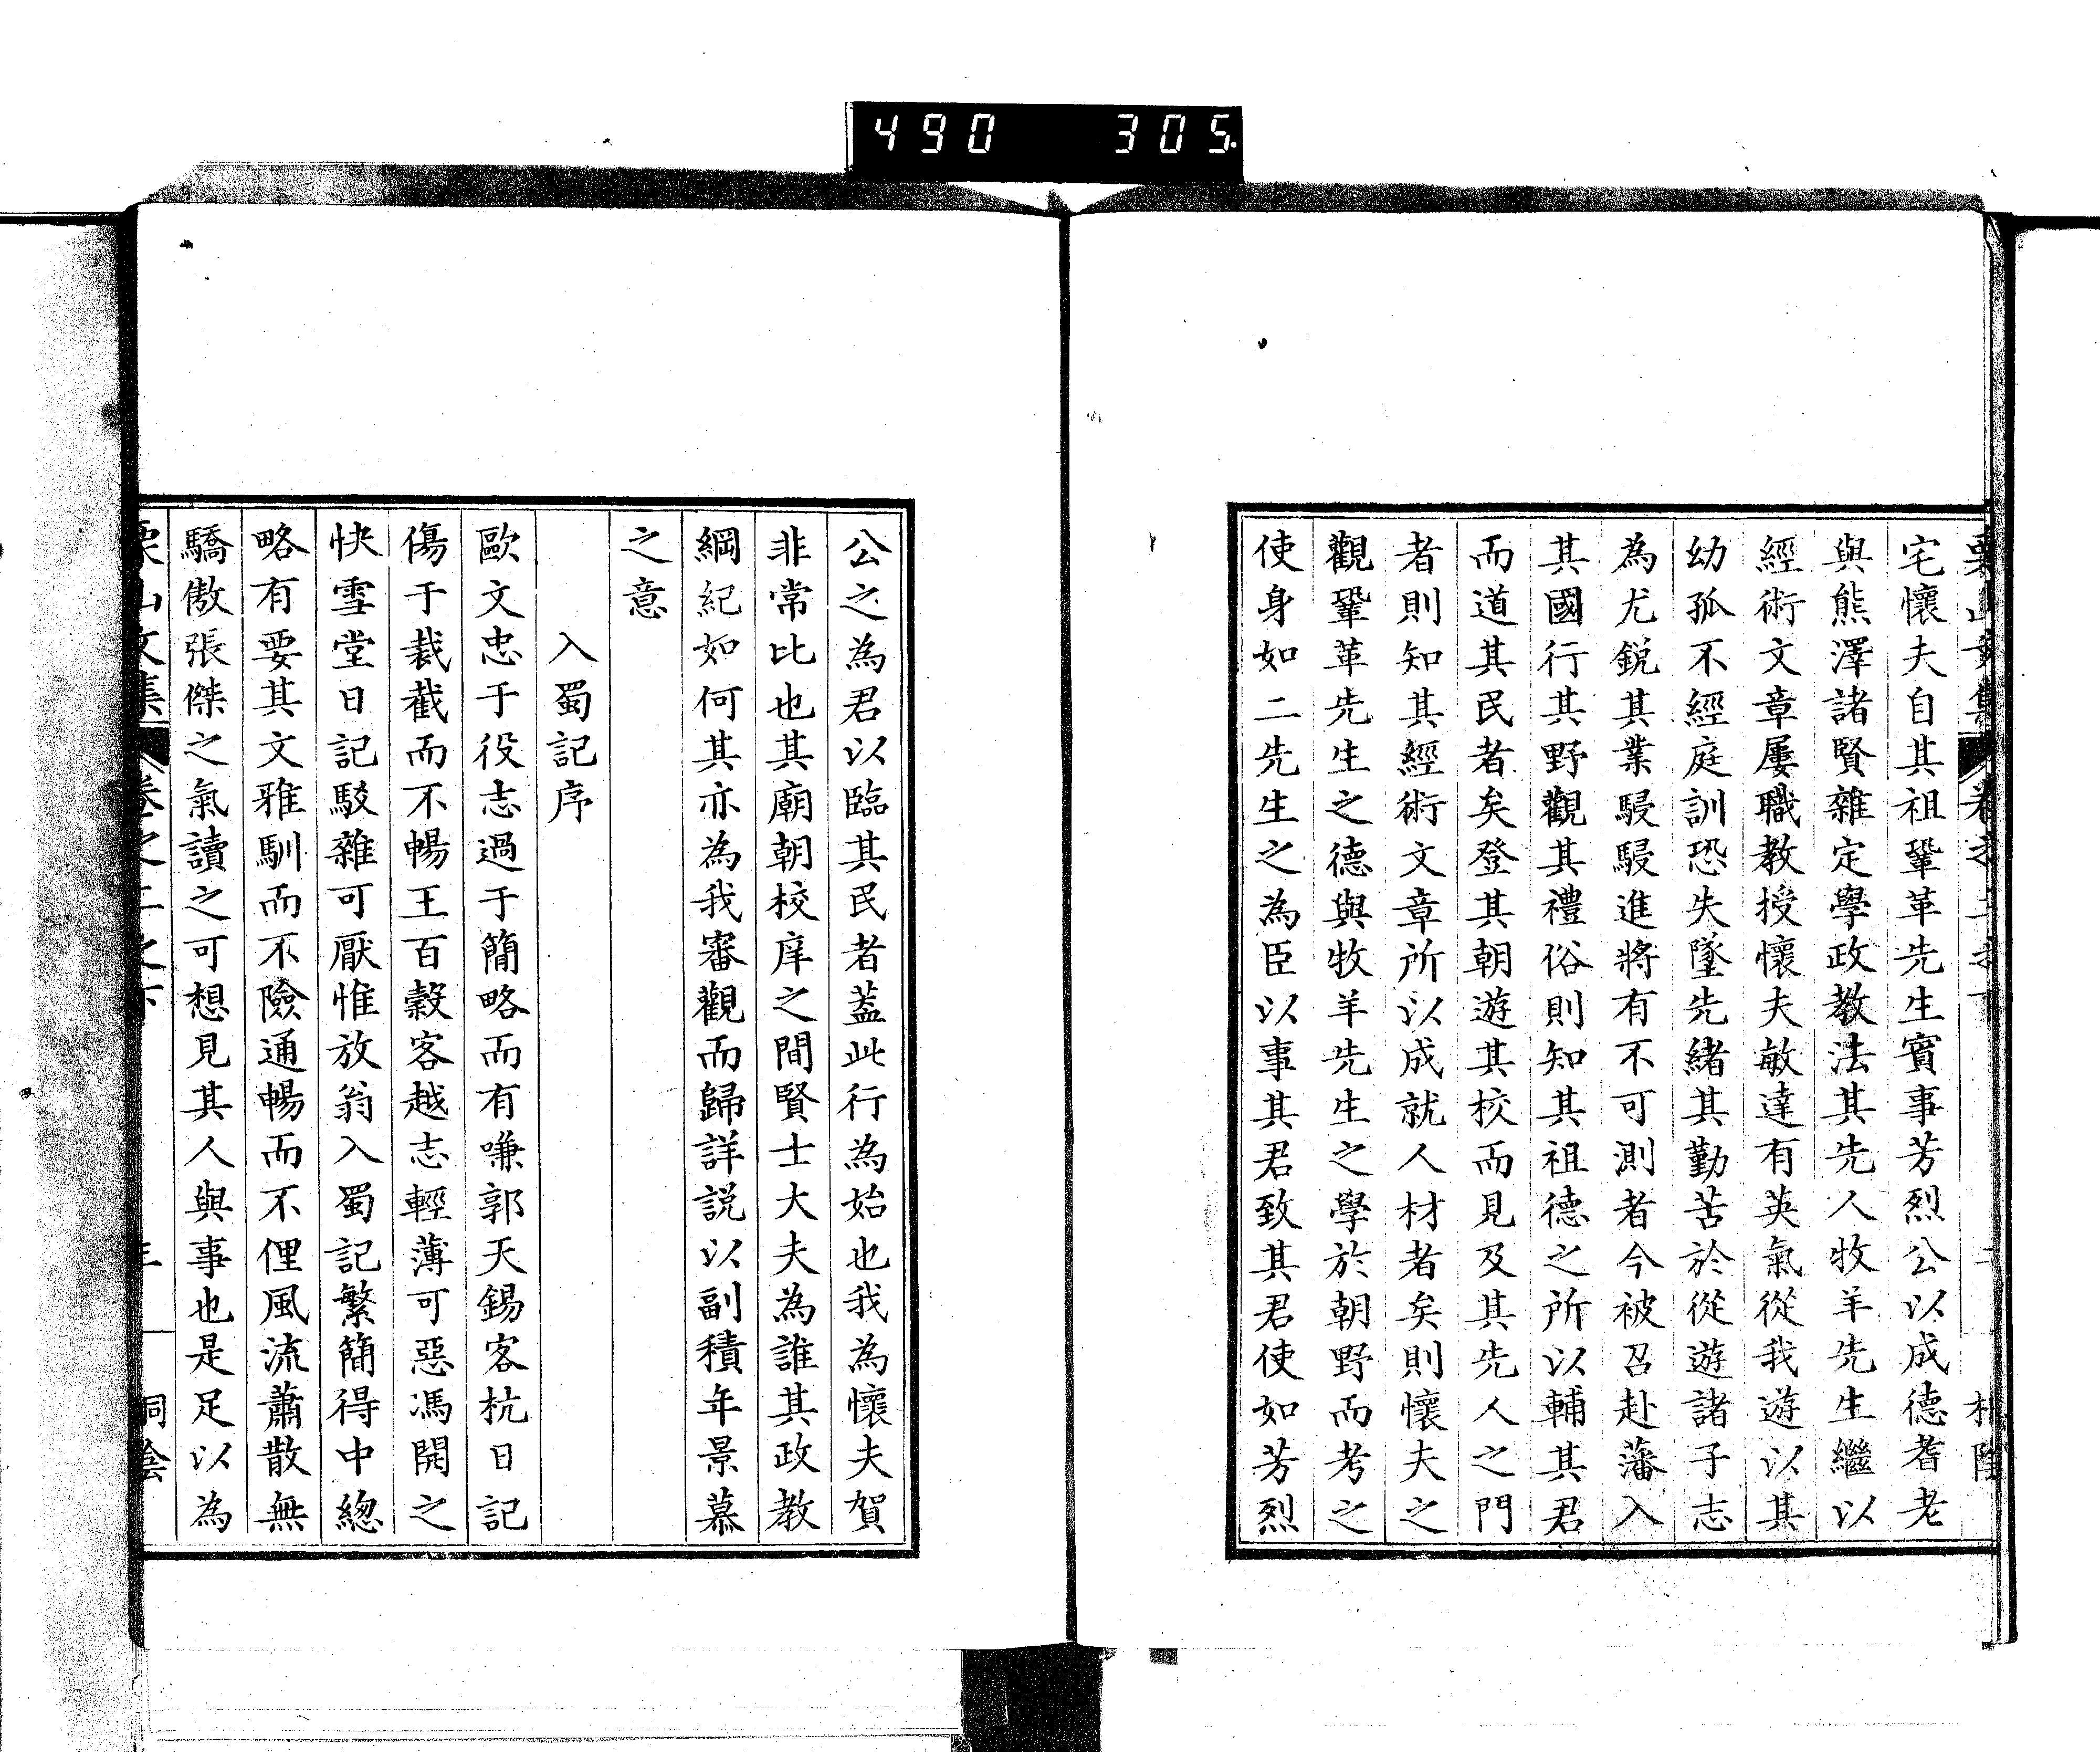 490 305.
宅懷夫自其祖鞏革先生賓事芳烈公以成德耆老
與熊澤諸賢雜定學政教法其先人牧羊先生繼以
經術文章屢職教授懷夫敏達有英氣從我遊以其
幼孤不經庭訓恐失墜先緒其勤苦於從遊諸子志
為尤銳其業駸駸進將有不可測者今被召赴藩入
其國行其野觀其禮俗則知其祖德之所以輔其君
而道其民者矣登其朝遊其校而見及其先人之門
者則知其經術文章所以成就人材者矣則懷夫之
觀鞏革先生之德與牧羊先生之學於朝野而考之
使身如二先生之為臣以事其君致其君使如芳烈
公之為君以臨其民者蓋此行為始也我為懷夫賀
非常比也其廟朝校庠之間賢士大夫為誰其政教
綱紀如何其亦為我審觀而歸詳説以副積年景慕
之意
入蜀記序
歐文忠于役志過于簡略而有嗛郭天錫客杭日記
傷于裁截而不暢王百穀客越志輕薄可惡馮開之
快雪堂日記駁雜可厭惟放翁入蜀記繁簡得中總
略有要其文雅馴而不險通暢而不俚風流蕭散無
驕傲張傑之氣讀之可想見其人與事也是足以為
栗山文集 卷之二之下 三 桐陰